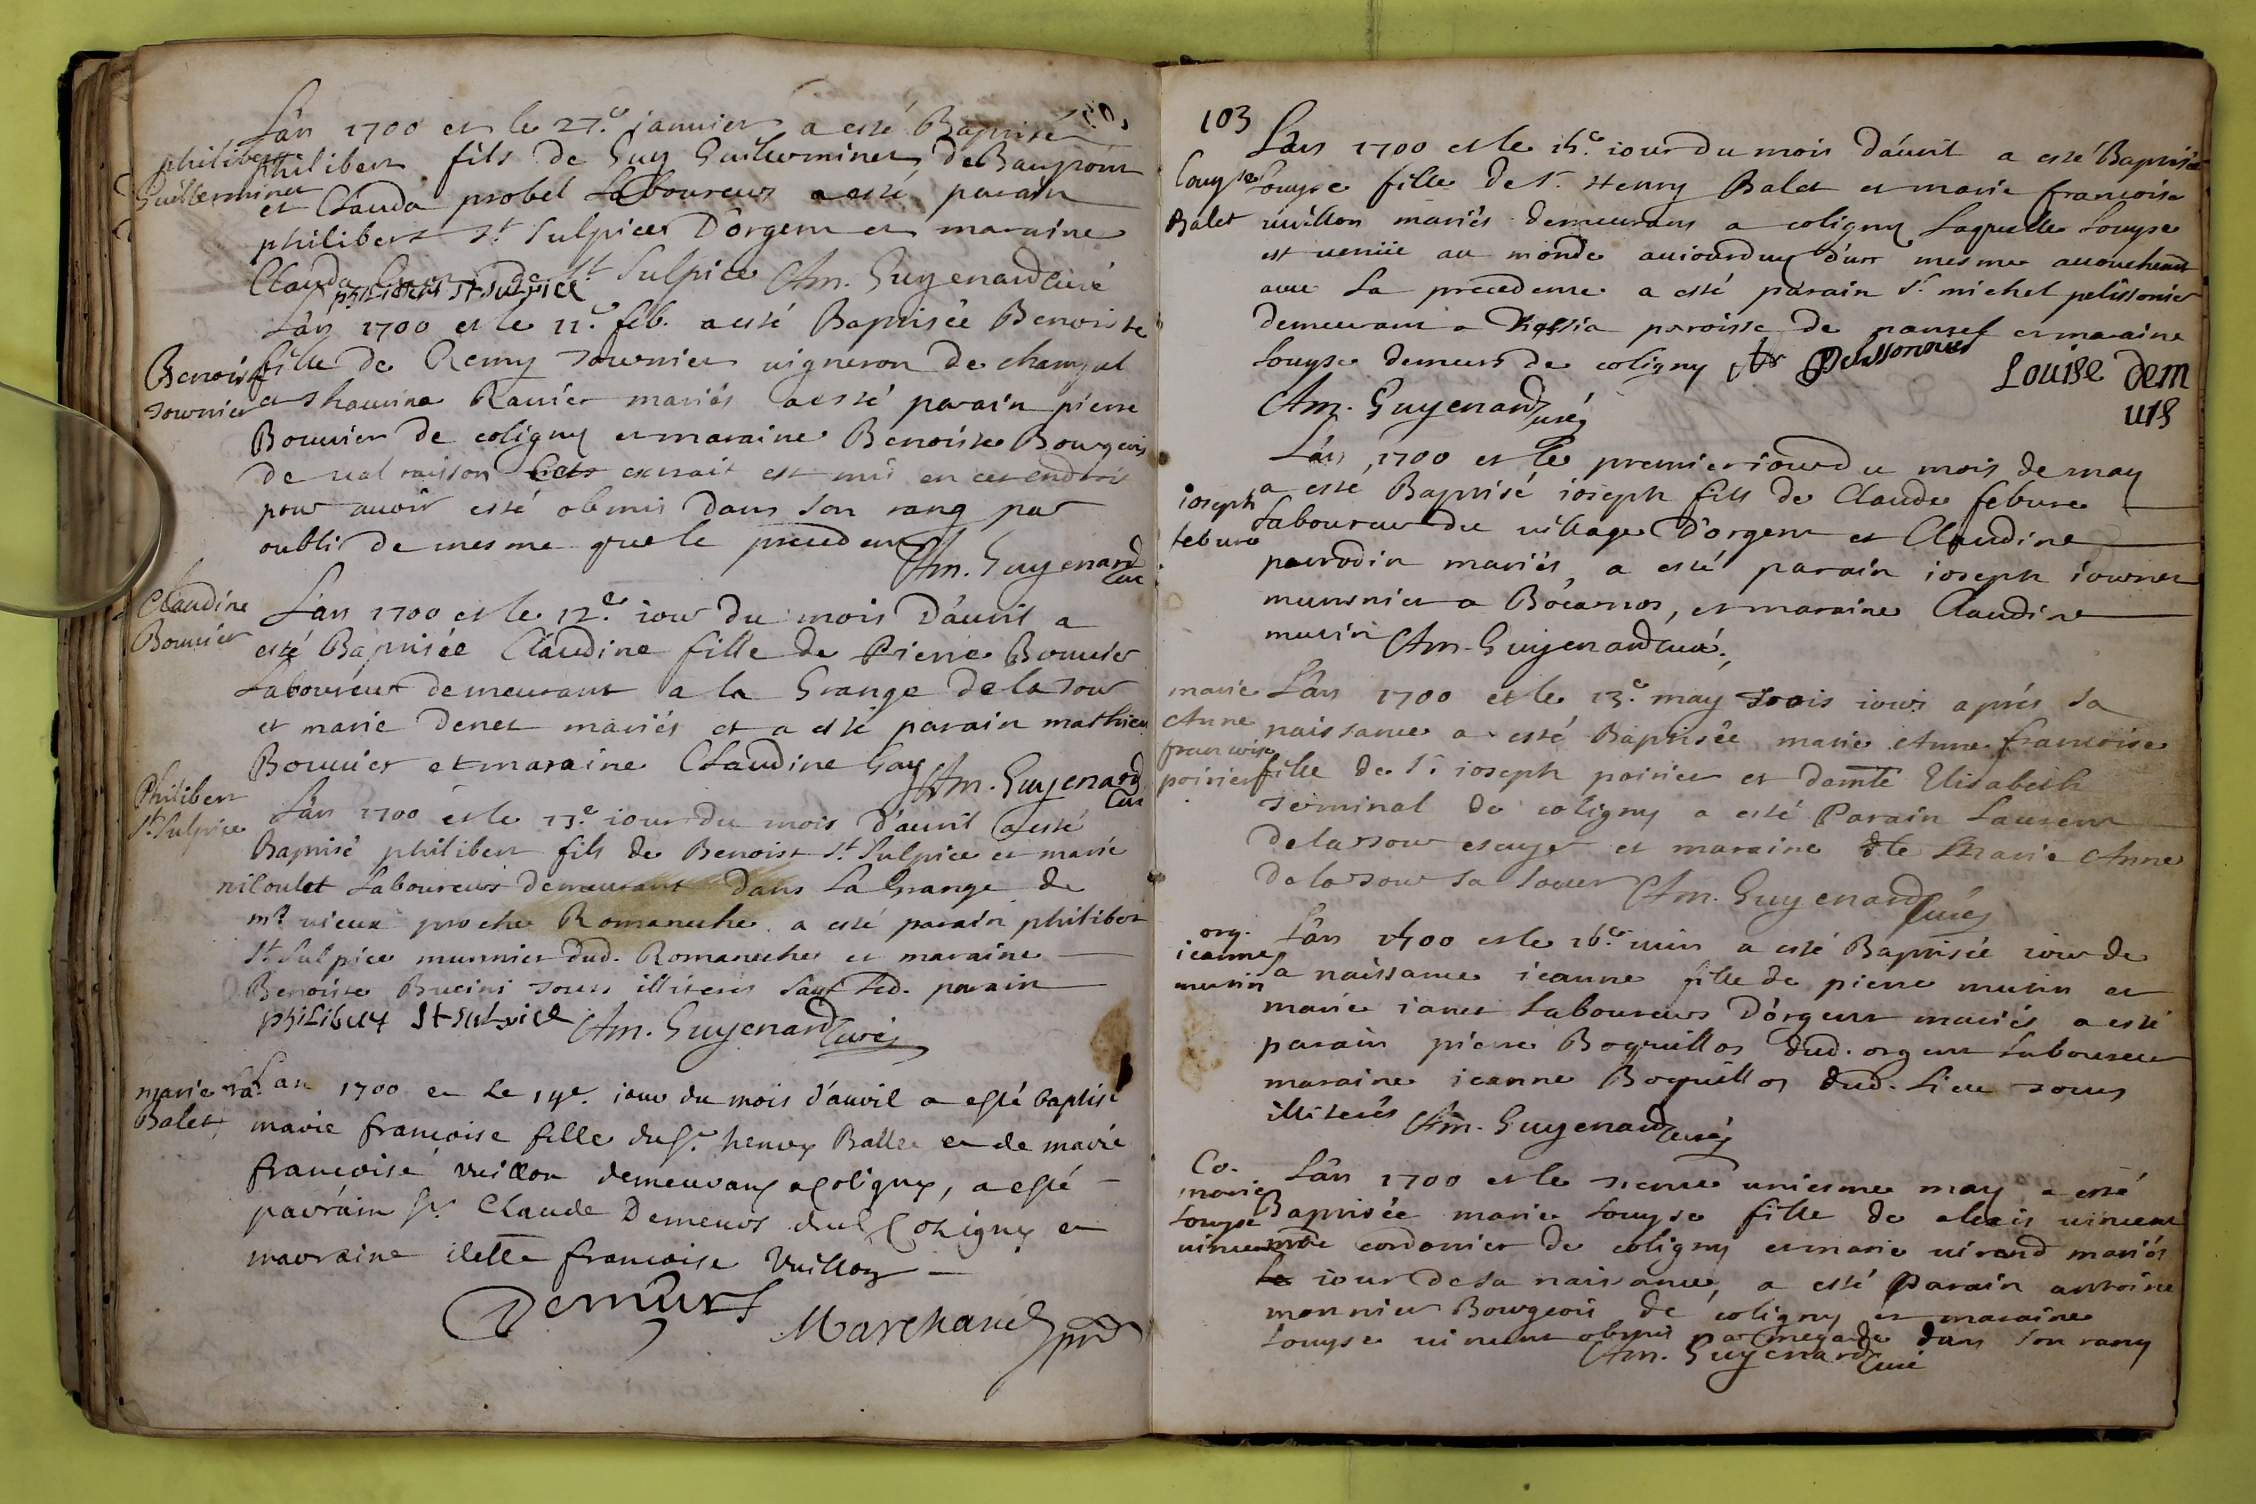 L'an 1700 et le 27.e ianuier a esté Baptisé
philibert
Guillerminet
philibert fils de Guy Guillerminet, de Baupont
et Clauda probel Laboureurs a esté parain
philibert st Sulpice D'orgent et maraine
Clauda de st Sulpice Am. Guyenard curé
philibert st sulpice
L'an 1700 et le 11.e feb. a esté Baptisée Benoiste
Benoiste
Tournier
fille de Remy Tournier uigneron de
et Thauine Rauier mariés a esté parain pierre
Bouuier de coligny et maraine Benoiste Bourgeois
de ual cet extrait est mis en cet endroit
pour auoir esté obmis dans son rang par
oubli de mesme que le precedent
Am. Guyenard
curé
Claudine
Bouuier
L'an 1700 et le 12.e iour du mois D'auril a
esté Baptisée Claudine fille de Pierre Bouuier
Laboureur demeurant a la Grange de la Tour
et marie Denet mariés et a esté parain mathieu
Bouuier et maraine Claudine Gay Am. Guyenard
curé
Philibert
st Sulpice
L'an 1700 et le 13.e iour du mois d'auril a esté
Baptisé philibert fils de Benoist st Sulpice et marie
nicoulet Laboureurs demeurant dans La Grange de
mr uieux proche Romaneche a esté parain philibert
st Sulpice munnier dud. Romaneche et maraine
Benoiste tous illiterés sauf led. parain
philibert st sulpice Am. Guyenard curé
marie fra.
Balet
L'an 1700 et le 14e. iour du mois d'auril a esté baptisé
marie françoise fille du sr. henry Ballet et de marie
françoise vuillon demeurans a Coligny, a esté
parrain sr. Claude Demeurs dud Coligny et
marraine dette françoise Vuillon
Demurs
Marchand ptre
103
L'an 1700 et le 15.e iour du mois d'auril a esté Baptisée
Louyse
Balet
Louyse fille de sr. Henry Balet et marie françoise
uuillon mariés demeurans a coligny Laquelle Louyse
est venüe au monde auiourduy d'un mesme accouchemt
auec La precedente a esté parain sr. michel pelissonier
demeurant a paroisse de et maraine
Louyse demeurs de coligny Pelissonier
Louise dem
urs
Am. Guyenard curé
L'an 1700 et le premier iour du mois de may
ioseph
febure
a esté Baptisé ioseph fils de Claude febure
Laboureur du uillage D'orgent et Claudine
parrodin mariés, a esté parain ioseph iournet
munsnier a Bocarnos, et maraine Claudine
mutin Am. Guyenard curé.
marie
Anne
francoise
poirier
L'an 1700 et le 13.e may trois iours aprés sa
naissance a esté Baptisée marie Anne francoise
fille de sr. ioseph poirier et damlle Elisabeth
Terminal de coligny a esté Parain Laurent
de la Tour escuyer et maraine dlle Marie Anne
de la Tour sa soeur Am. Guyenard curé
org.
ieanne
mutin
L'an 1700 et le 16.e iuin a esté Baptisée iour de
sa naissance ieanne fille de pierre mutin et
marie ianet Laboureurs D'orgent mariés a esté
parain pierre Boquillos dud. orgent Laboureur
maraine ieanne Boquillos dud. Lieu tous
illiterés Am. Guyenard curé
Co.
marie
Louyse
uincent
L'an 1700 et le trente uniesme may a esté
Baptisée marie Louyse fille de alexis uincent
mre cordonier de coligny et marie uirand mariés
le iour de sa naissance, a esté Parain antoine
monnier Bourgeois de coligny et maraine
Louyse uincent obmis par megarde dans son rang
Am. Guyenard curé